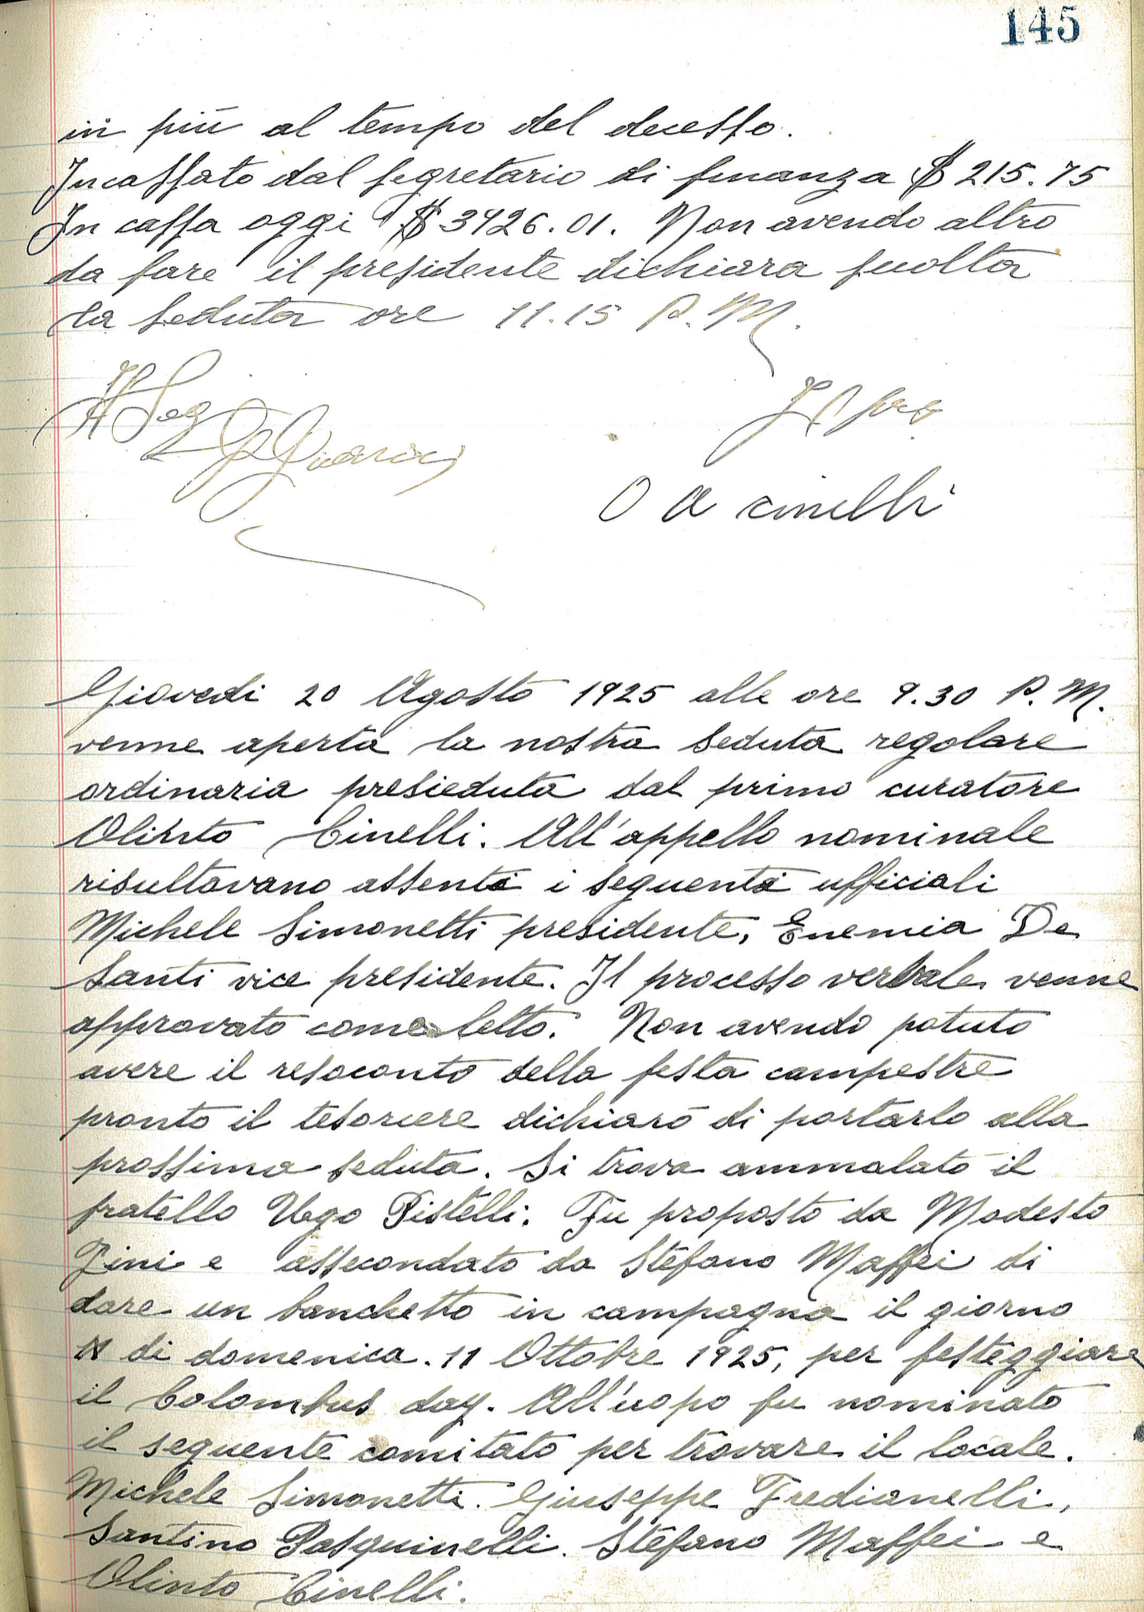 145
in più al tempo del decesso.
Incassato dal segretario di finanza $ 215.75
In cassa oggi $ 3926.01. Non avendo altro
da fare il presidente dichiara sciolta
la seduta ore 11.15 P.M.
Il Seg
O a cinelli
Giovedi 20 Agosto 1925 alle ore 9.30 P.M.
venne aperta la nostra seduta regolare
ordinaria presieduta dal primo curatore
Olinto Cinelli. All'appello nominale
risultavano assenti i seguenti ufficiali
Michele Simonetti presidente, Enemia De
Santi vice presidente. Il processo verbale venne
approvato come letto. Non avendo potuto
avere il resoconto della festa campestre
pronto il tesoriere dichiarò di portarlo alla
prossima seduta. Si trova ammalato il
fratello Ugo Pistelli. Fu proposto da Modesto
Pini e assecondato da Stefano Maffei di
dare un banchetto in campagna il giorno
di domenica. 11 Ottobre 1925, per festeggiare
il Colombus day. All'uopo fu nominato
il seguente comitato per trovare il locale.
Michele Simonetti. Giuseppe Fredianelli,
Santino Pasquinelli. Stefano Maffei e
Olinto Cinelli.